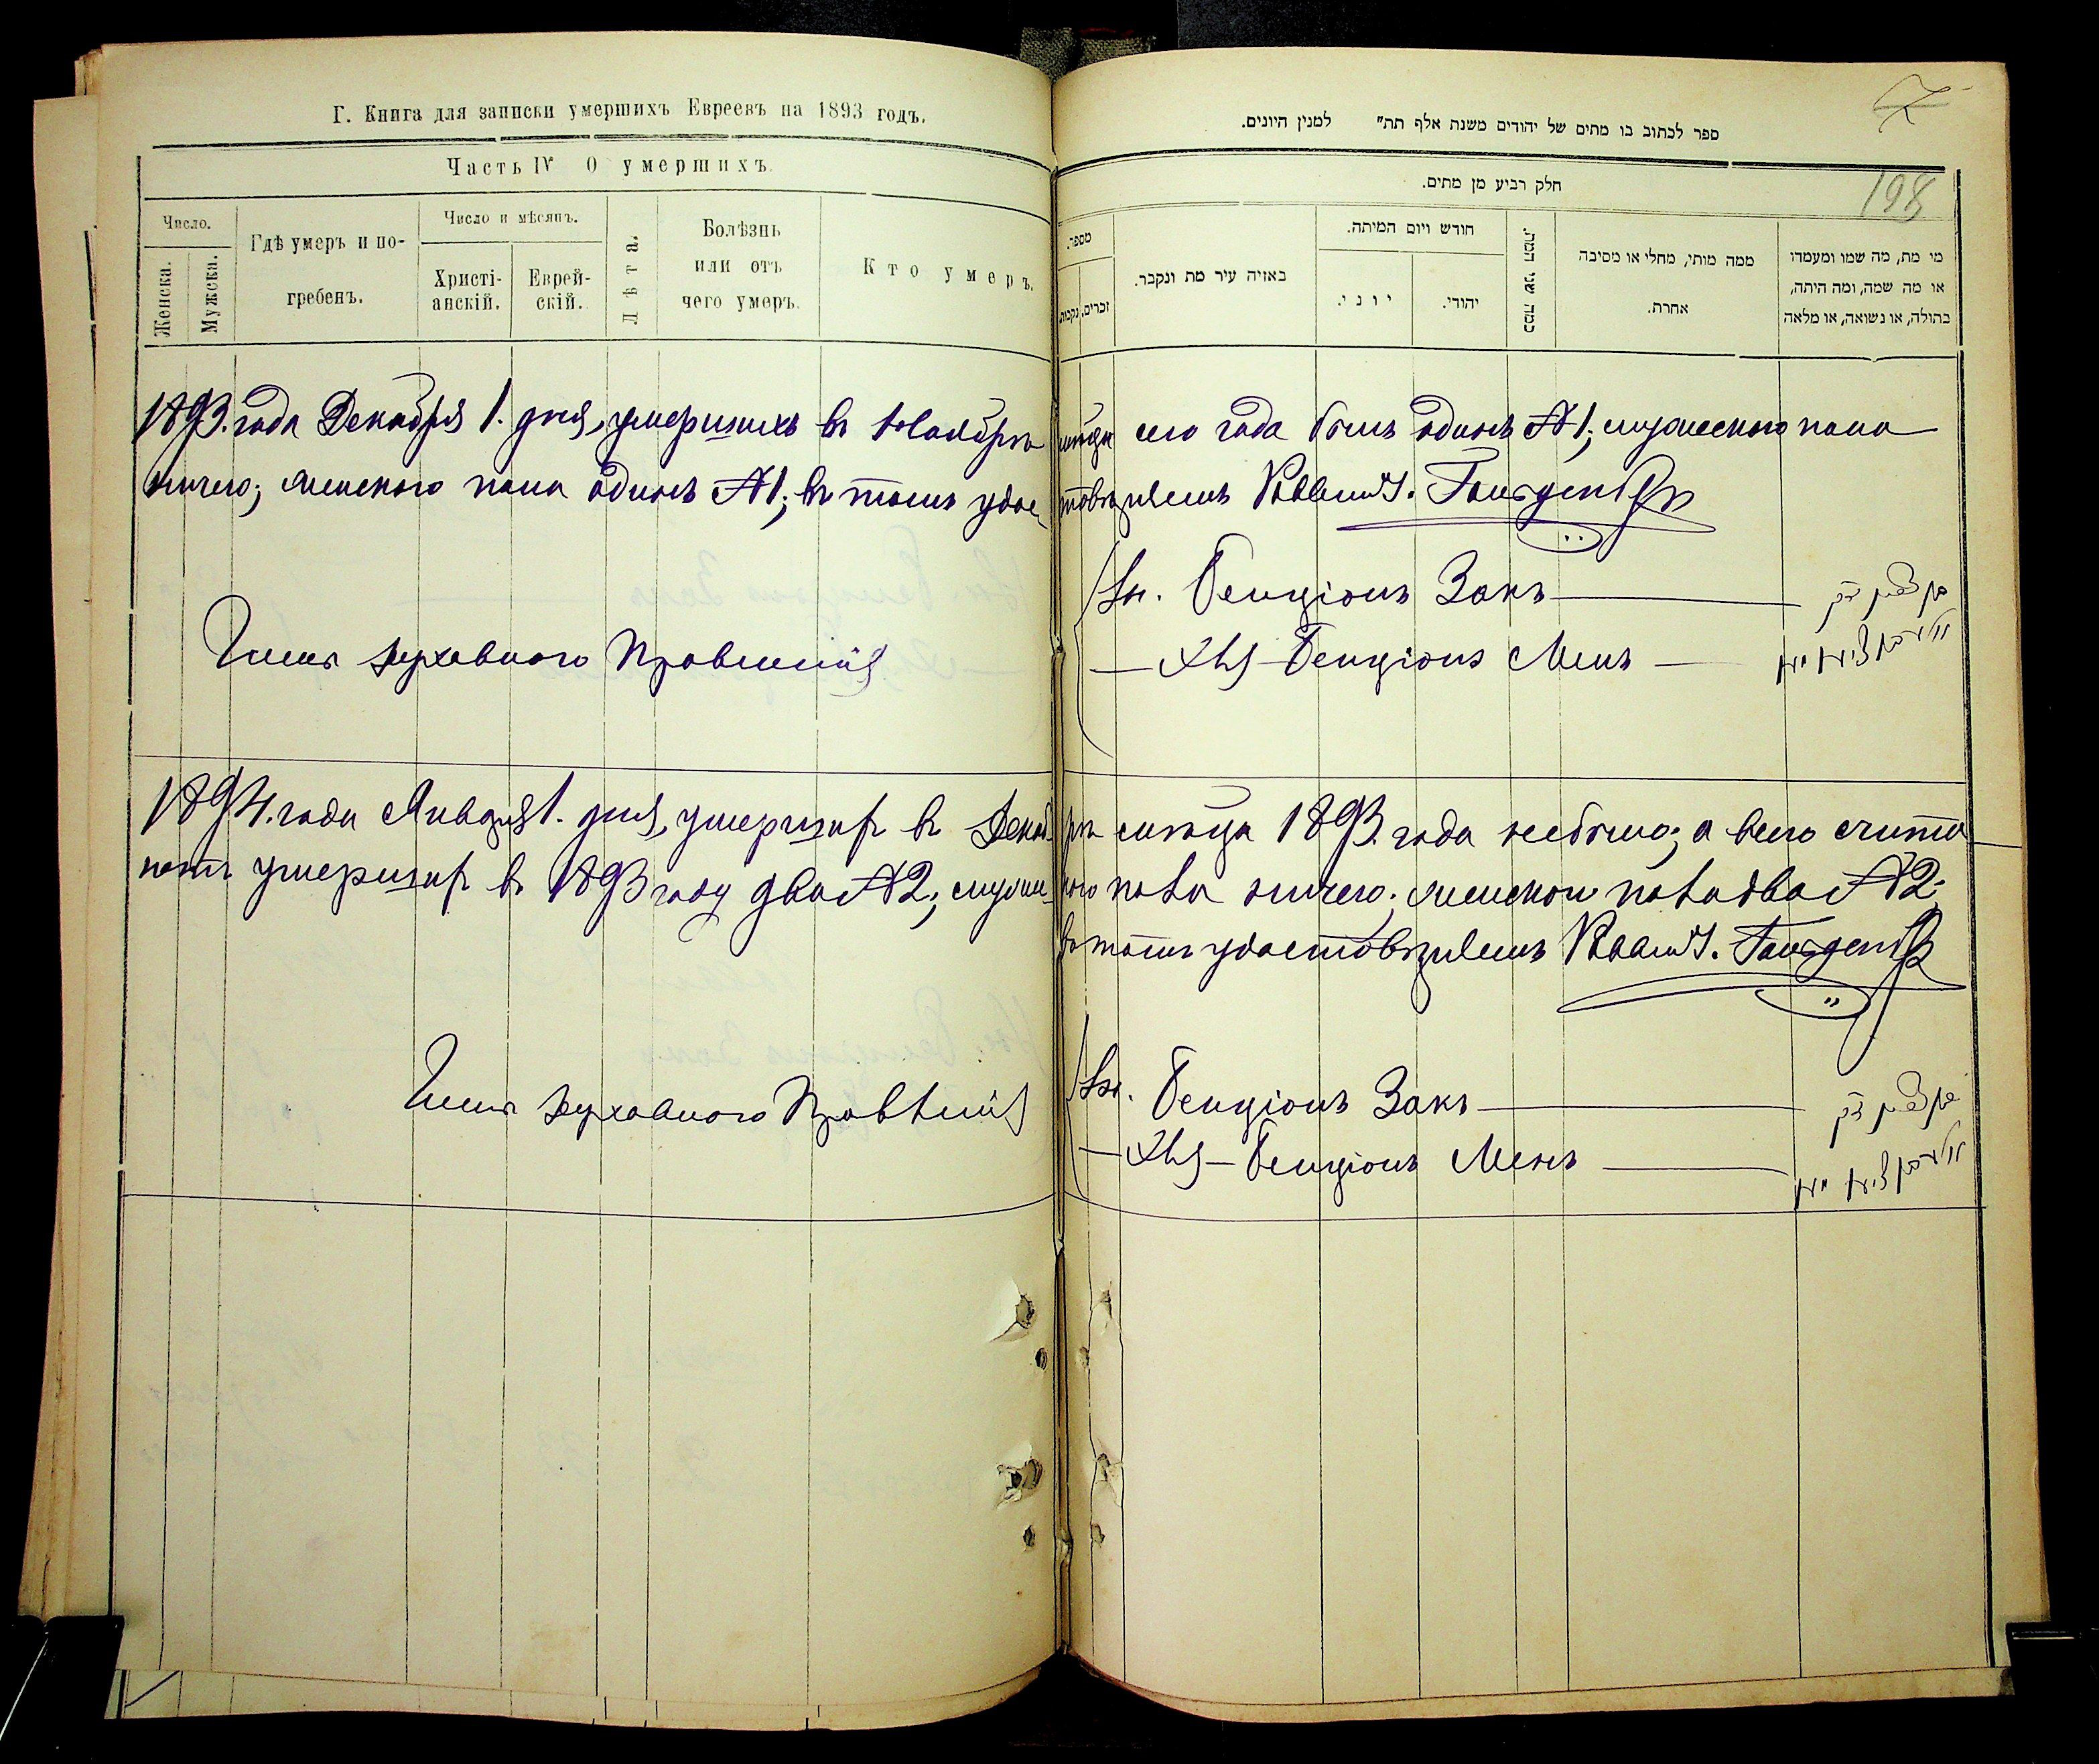 Г. Книга для записки умершихъ Евреевъ на 1893 годъ.
Часть IV О умершихъ.
Число.
Женска.
Мужска.
Гдѣ умеръ и по-
гребенъ.
Число и мѣсяцъ.
Христі-
анскій.
Еврей-
скій.
Лѣта.
Болѣзнь
или отъ
чего умеръ.
Кто умеръ.
7
ספר לכתוב בו מתים של יהודים משנת אלף תת" למנין היונים.
198
חלק רביע מן מתים.
מספר.
זכרים.
נקבות.
באיזה עיר מת ונקבר.
חודש ויום המיתה.
יוני.
יהודי.
כמה שני
ממה מותי, מחלי או מסיבה
אחרת.
מי מת, מה שמו ומעמדו
או מה שמה, ומה היתה,
בתולה, או נשואה, או מלאה
1893. года Декабря 1. дня, умершихъ въ Ноябрѣ мѣсяца сего года былъ одинъ №1; мужескаго пола
ничего; женского пола одинъ №1; въ томъ удостовѣряемъ
Члены Духовного Правленія
Бенціонъ Закъ
Бенціонъ Менъ
1894. года Января 1. дня, умершихъ въ Декабрѣ мѣсяца 1893. года небыло; а всего счита
умершихъ въ 1893 году два №2; мужеского пола ничего; женского пола два №2;
въ томъ удостовѣряемъ
Члены Духовного Правленія
Бенціонъ Закъ
Бенціонъ Менъ